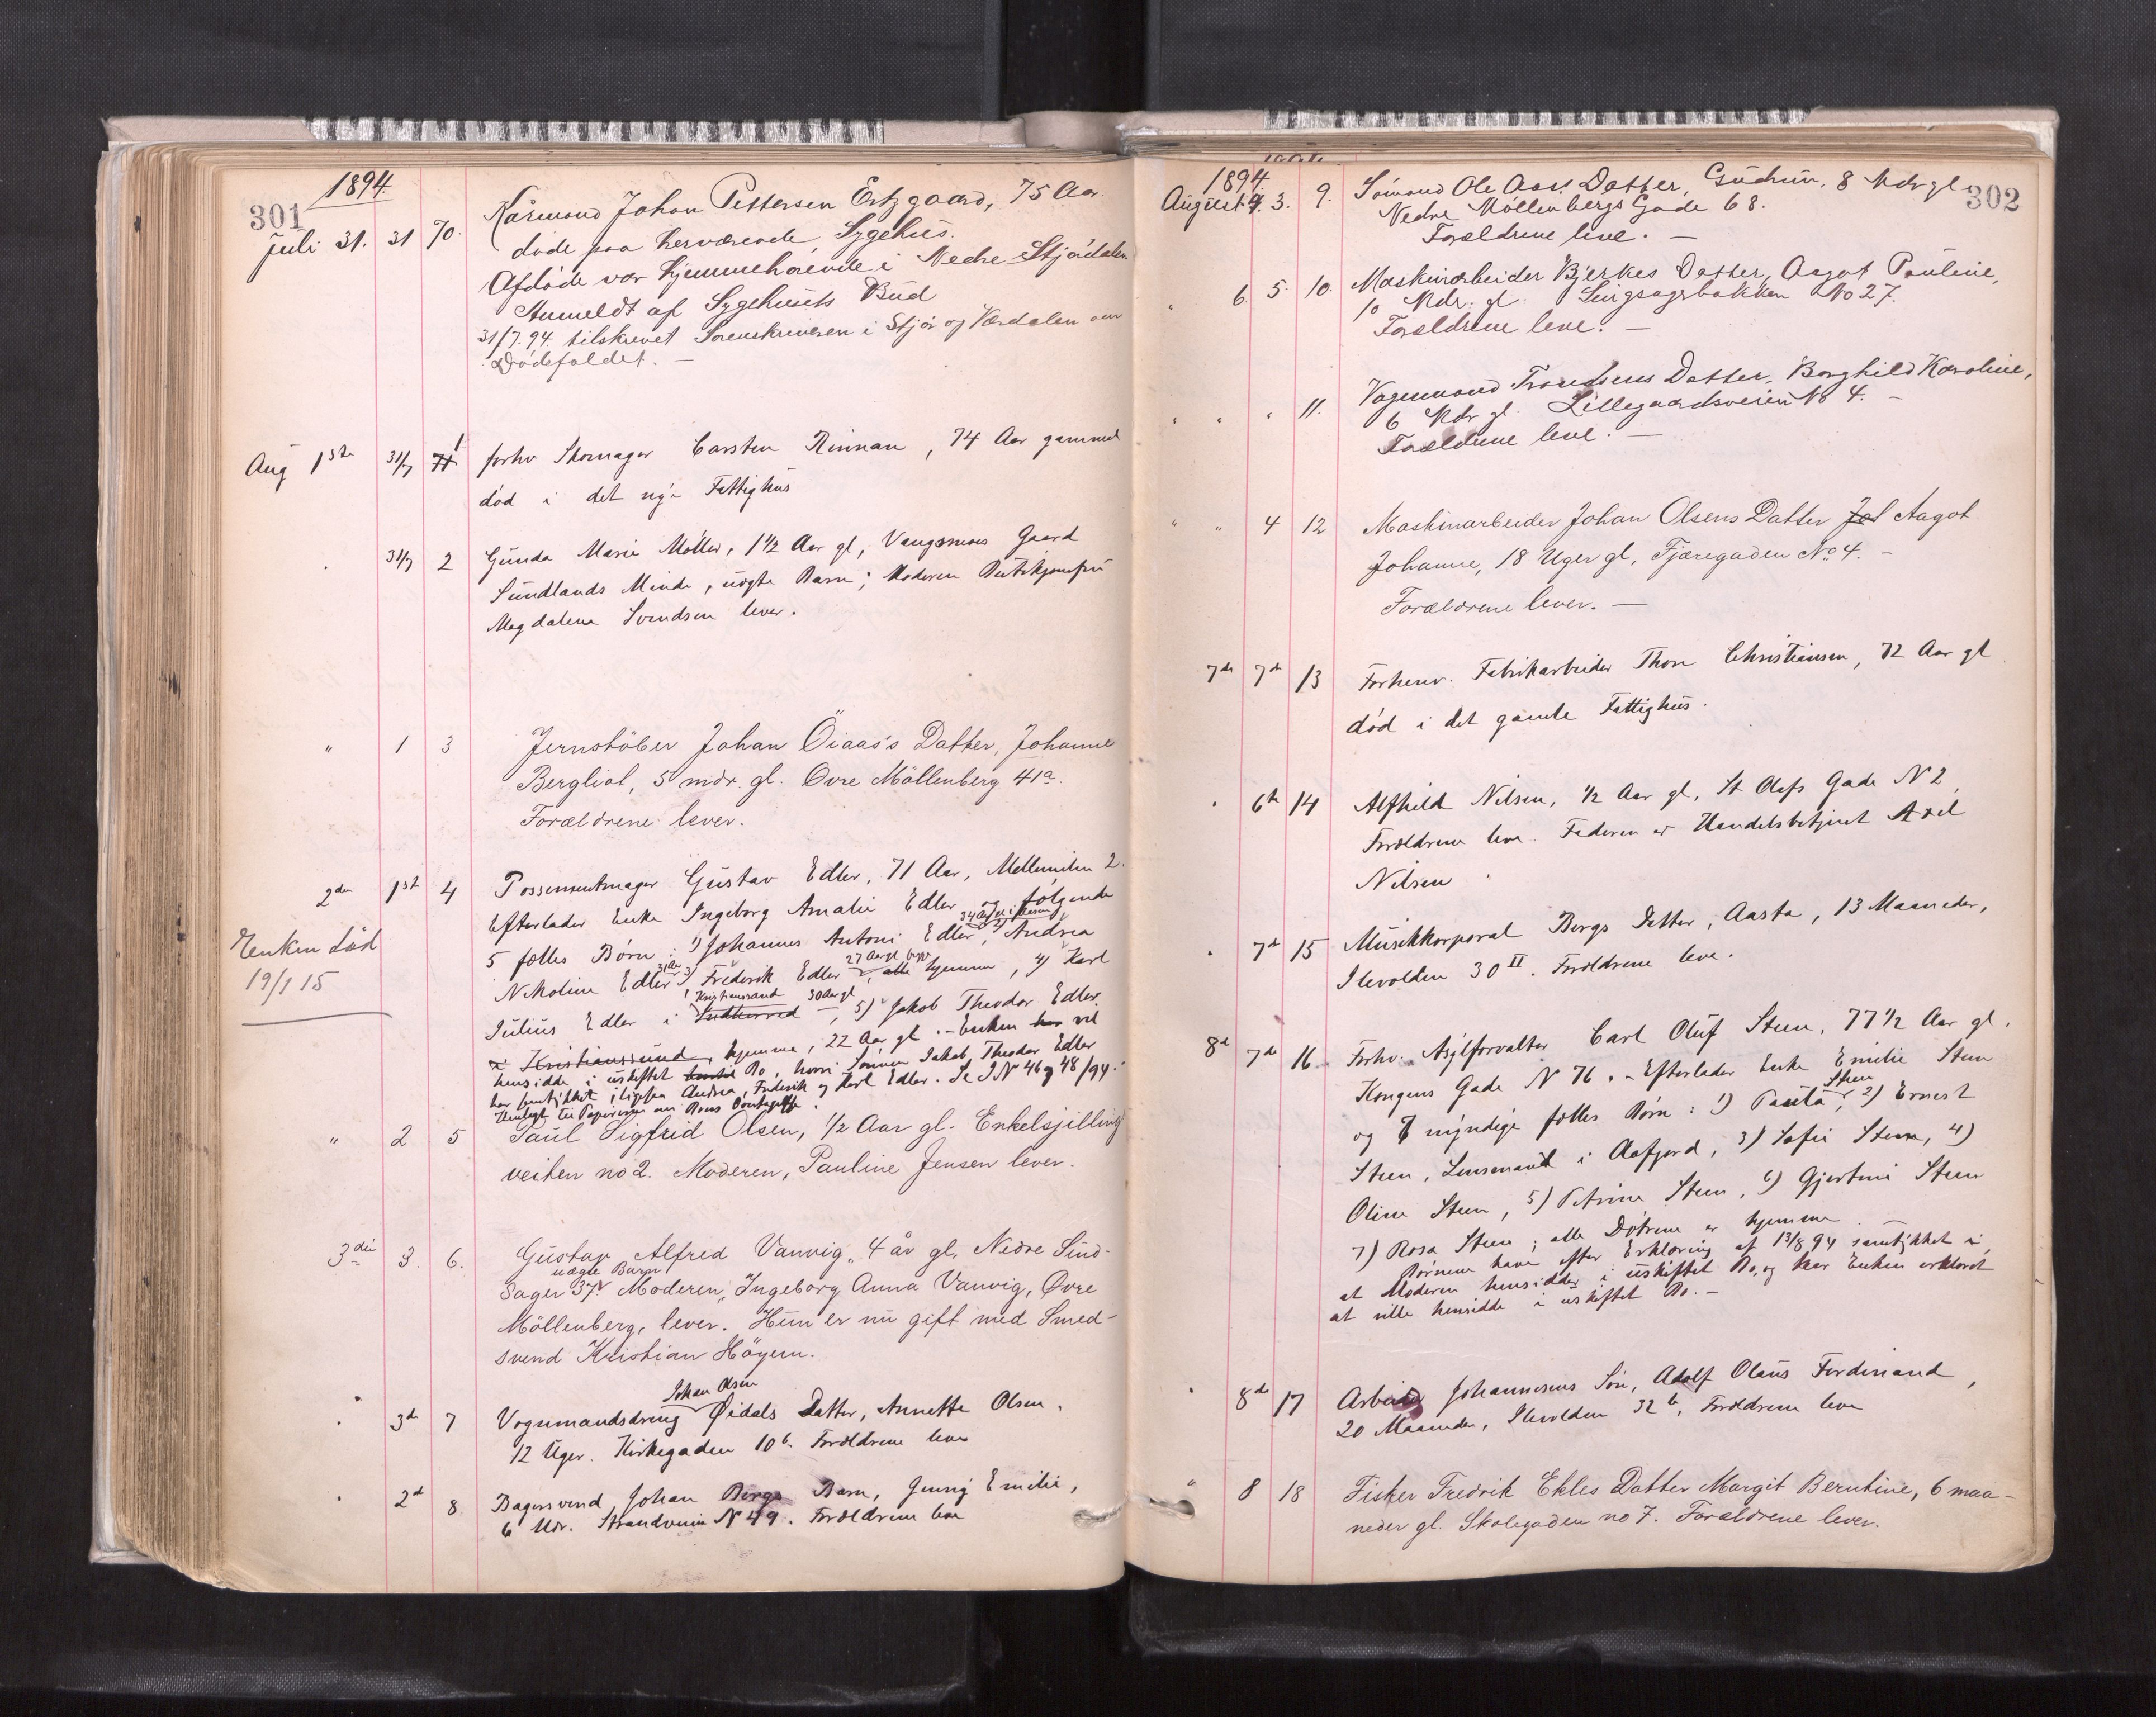 1894.
301
Juli 31. 31 70. Kårmand Johan Pettersen Ertzgaard, 75 Aar.
døde paa herværende Sygehus.
Afdøde var hjemmehørende i Nedre Stjørdalen
Anmeldt af Sygehusets Bud
31/7.94. tilskrevet Sorenskriveren i Stjør og Værdalen om
Dødsfaldet. —
Aug 1ste 31/7 71 1 forhv Skomager Carsten Rinnan, 74 Aar gammel
död i det nye Fattighus
31/7 2 Gunda Marie Möller, 1 1/2 Aar gl, Gaard
Sundlands Minde, uægte Barn; Moderen
Magdalena Svendsen lever.
" 1 3 Jernstöber Johan Öiaas's Datter, Johanne
Bergliot, 5 mdr. gl. Øvre Möllenberg 41a.
Forældrene lever.
2den 1st 4 Possementmager Gustav Edler, 71 Aar, Mellemilen 2.
Efterlader Enke Ingeborg Amalie Edler og følgende
34 Aar gl i
5 fælles Børn: 1) Johannes Antoni Edler, 2) Andrea
31 Aar 27 Aar gl
Nikoline Edler 3) Frederik Edler, alle hjemme, 4) Karl
Kristianssand 30 Aar gl
Julius Edler i —, 5) Jakob Theodor Edler
i Kristianssund, hjemme, 22 Aar gl. - Enken har vil
hensidde i uskiftet Bo, hvori Sönnen Jakob Theodor Edler
har samtykket, ligesaa Andrea, Frederik og Karl Edler. Se J.N 46 og 48/94.
Henlagt til Papirerne om Boets
Enken död
19/1 15
" 2 5 Paul Sigfrid Olsen, 1/2 Aar gl. Enkelsjilling
veiten no 2. Moderen, Pauline Jensen lever.
3die 3. 6. Gustav Alfred Vanvig, 4 år gl. Nedre Sing-
uægte Barn
sager 37. Moderen, Ingeborg Anna Vanvig, Øvre
Möllenberg, lever. Hun er nu gift med Smed-
svend Kristian Höyem.
Johan Olsen
" 3d 7 Vognmandsdreng Øidals Datter, Annette Olsen,
12 Uger. Kirkegaden 10b. Forældrene leve
" 2d 8 Bagersvend Johan Bergs Barn, Jenny Emilie,
6 Mdr. Strandveien N 49. Forældrene leve
1894.
302
August 4. 3. 9. Sömand Ole Aas's Datter, Gudrun, 8 Mdr gl
Nedre Möllenbergs Gade 68.
Forældrene leve. —
" 6. 5. 10. Maskinarbeider Bjerkes Datter, Aagot Pauline,
10 Mdr. gl. Singsagerbakken No 27.
Forældrene leve. —
" " " 11. Vognmand Trondsens Datter, Borghild Karoline,
6 Mdr gl. Lillegaardsveien No 4. -
Forældrene leve. —
" " 4 12 Maskinarbeider Johan Olsens Datter Jol Aagot
Johanne, 18 Uger gl, Fjæregaden No 4. -
Forældrene lever. —
7de 7de 13 Forhenv. Fabrikarbeider Thore Christiansen, 72 Aar gl
död i det gamle Fattighus.
" 6te 14 Alfhild Nilsen, 1/2 Aar gl, St Olafs Gade N 2,
Forældrene leve. Faderen er Handelsbetjent Axel
Nilsen.
" 7d 15 Musikkorporal Bergs Datter, Aasta, 13 Maaneder,
Ilevolden 30 II. Forældrene leve.
8d 7de 16. Forhv. Asylforvalter Carl Oluf Steen, 77 1/2 Aar gl.
Kongens Gade N 76. - Efterlader Enke Emilie Steen
Steen
og 7 myndige fælles Børn: 1) Paula, 2) Ernest
Steen, Lensmand i Aafjord, 3) Sofie Steen, 4)
Oline Steen, 5) Petrine Steen, 6) Gjertine Steen
7) Rosa Steen; alle Døtrene er hjemme.
Børnene have efter Erklæring af 13/8 94 samtykket i,
at Moderen hensidder i uskiftet Bo, og har Enken erklæret
at ville hensidde i uskiftet Bo. —
" 8de 17 Arbeider Johannesens Søn, Adolf Olaus Ferdinand,
20 Maaneder, Ilevolden 32b, Forældrene leve
" 8 18 Fisker Fredrik Ekles Datter Margit Berntine, 6 maa-
neder gl. Skolegaden no 7. Forældrene lever.